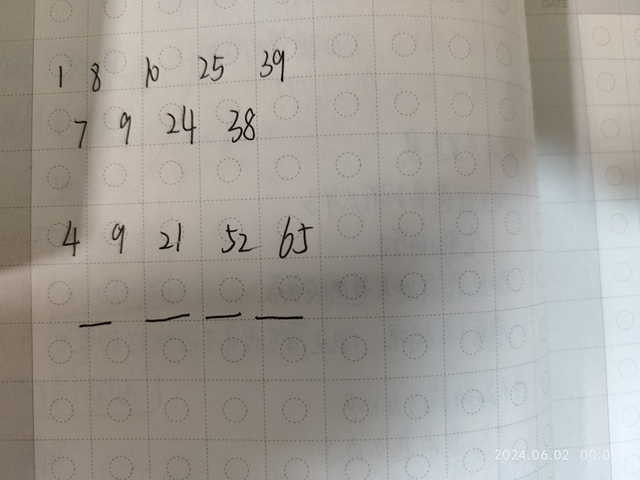 DATE
1 8 10 25 39
7 9 24 38
4 9 21 52 65
2024.06.02 00:0